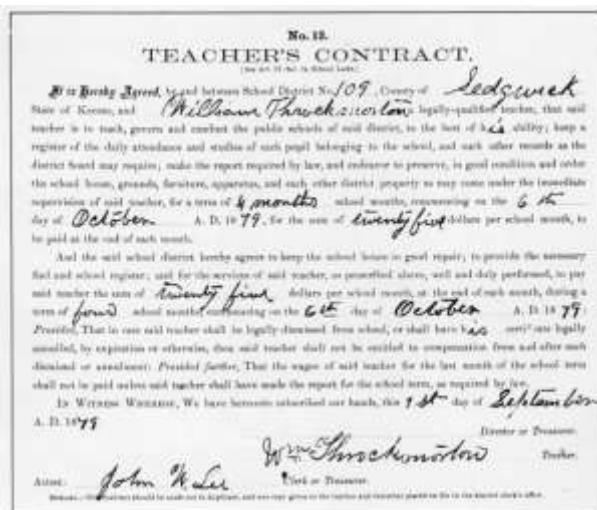 No. 13.
TEACHER'S CONTRACT.
It is Hereby Agreed, by and between School District No. 109, County of Sedgwick
State of Kansas, and William Throckmorton a legally-qualified teacher, that said
teacher is to teach, govern and conduct the public schools of said district, to the best of his ability; keep a
register of the daily attendance and studies of each pupil belonging to the school, and such other records as the
district board may require; make the report required by law, and endeavor to preserve, in good condition and order
the school house, grounds, furniture, apparatus, and such other district property as may come under the immediate
supervision of said teacher, for a term of 4 months school months, commencing on the 6th
day of October A. D. 1879, for the sum of twenty five dollars per school month, to
be paid at the end of each month.
And the said school district hereby agrees to keep the school house in good repair; to provide the necessary
fuel and school register; and for the services of said teacher, as prescribed above, well and duly performed, to pay
said teacher the sum of twenty five dollars per school month, at the end of each month, during a
term of four school months commencing on the 6th day of October A. D. 1879
Provided, That in case said teacher shall be legally dismissed from school, or shall have his certificate legally
annulled, by expiration or otherwise, then said teacher shall not be entitled to compensation from and after such
dismissal or annulment: Provided further, That the wages of said teacher for the last month of the school term
shall not be paid unless said teacher shall have made the report for the school term, as required by law.
In Witness Whereof, We have hereunto subscribed our hands, this 1st day of September
A. D. 1879
Director or Treasurer.
Wm Throckmorton Teacher.
Attest: John W. Lee Clerk or Treasurer.